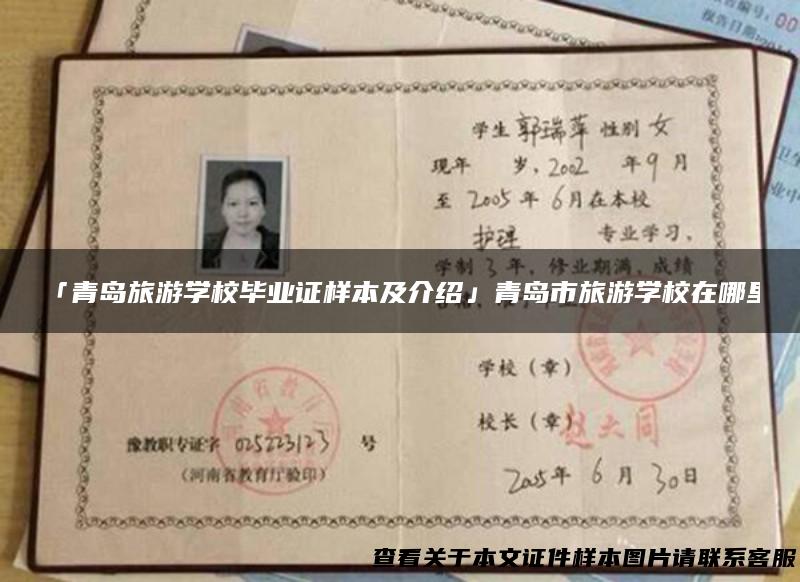 告编号:00
报告日期:201
学生郭瑞萍性别女
现年 岁,2002 年9月
至2005年6月在本校
护理 专业学习,
学制3年,修业期满,成绩
「青岛旅游学校毕业证样本及介绍」青岛市旅游学校在哪里
学校(章)
校长(章)赵大同
豫教职专证字 025223123 号
(河南省教育厅验印)
河南省教育厅
2005年6月30日
查看关于本文证件样本图片请联系客服